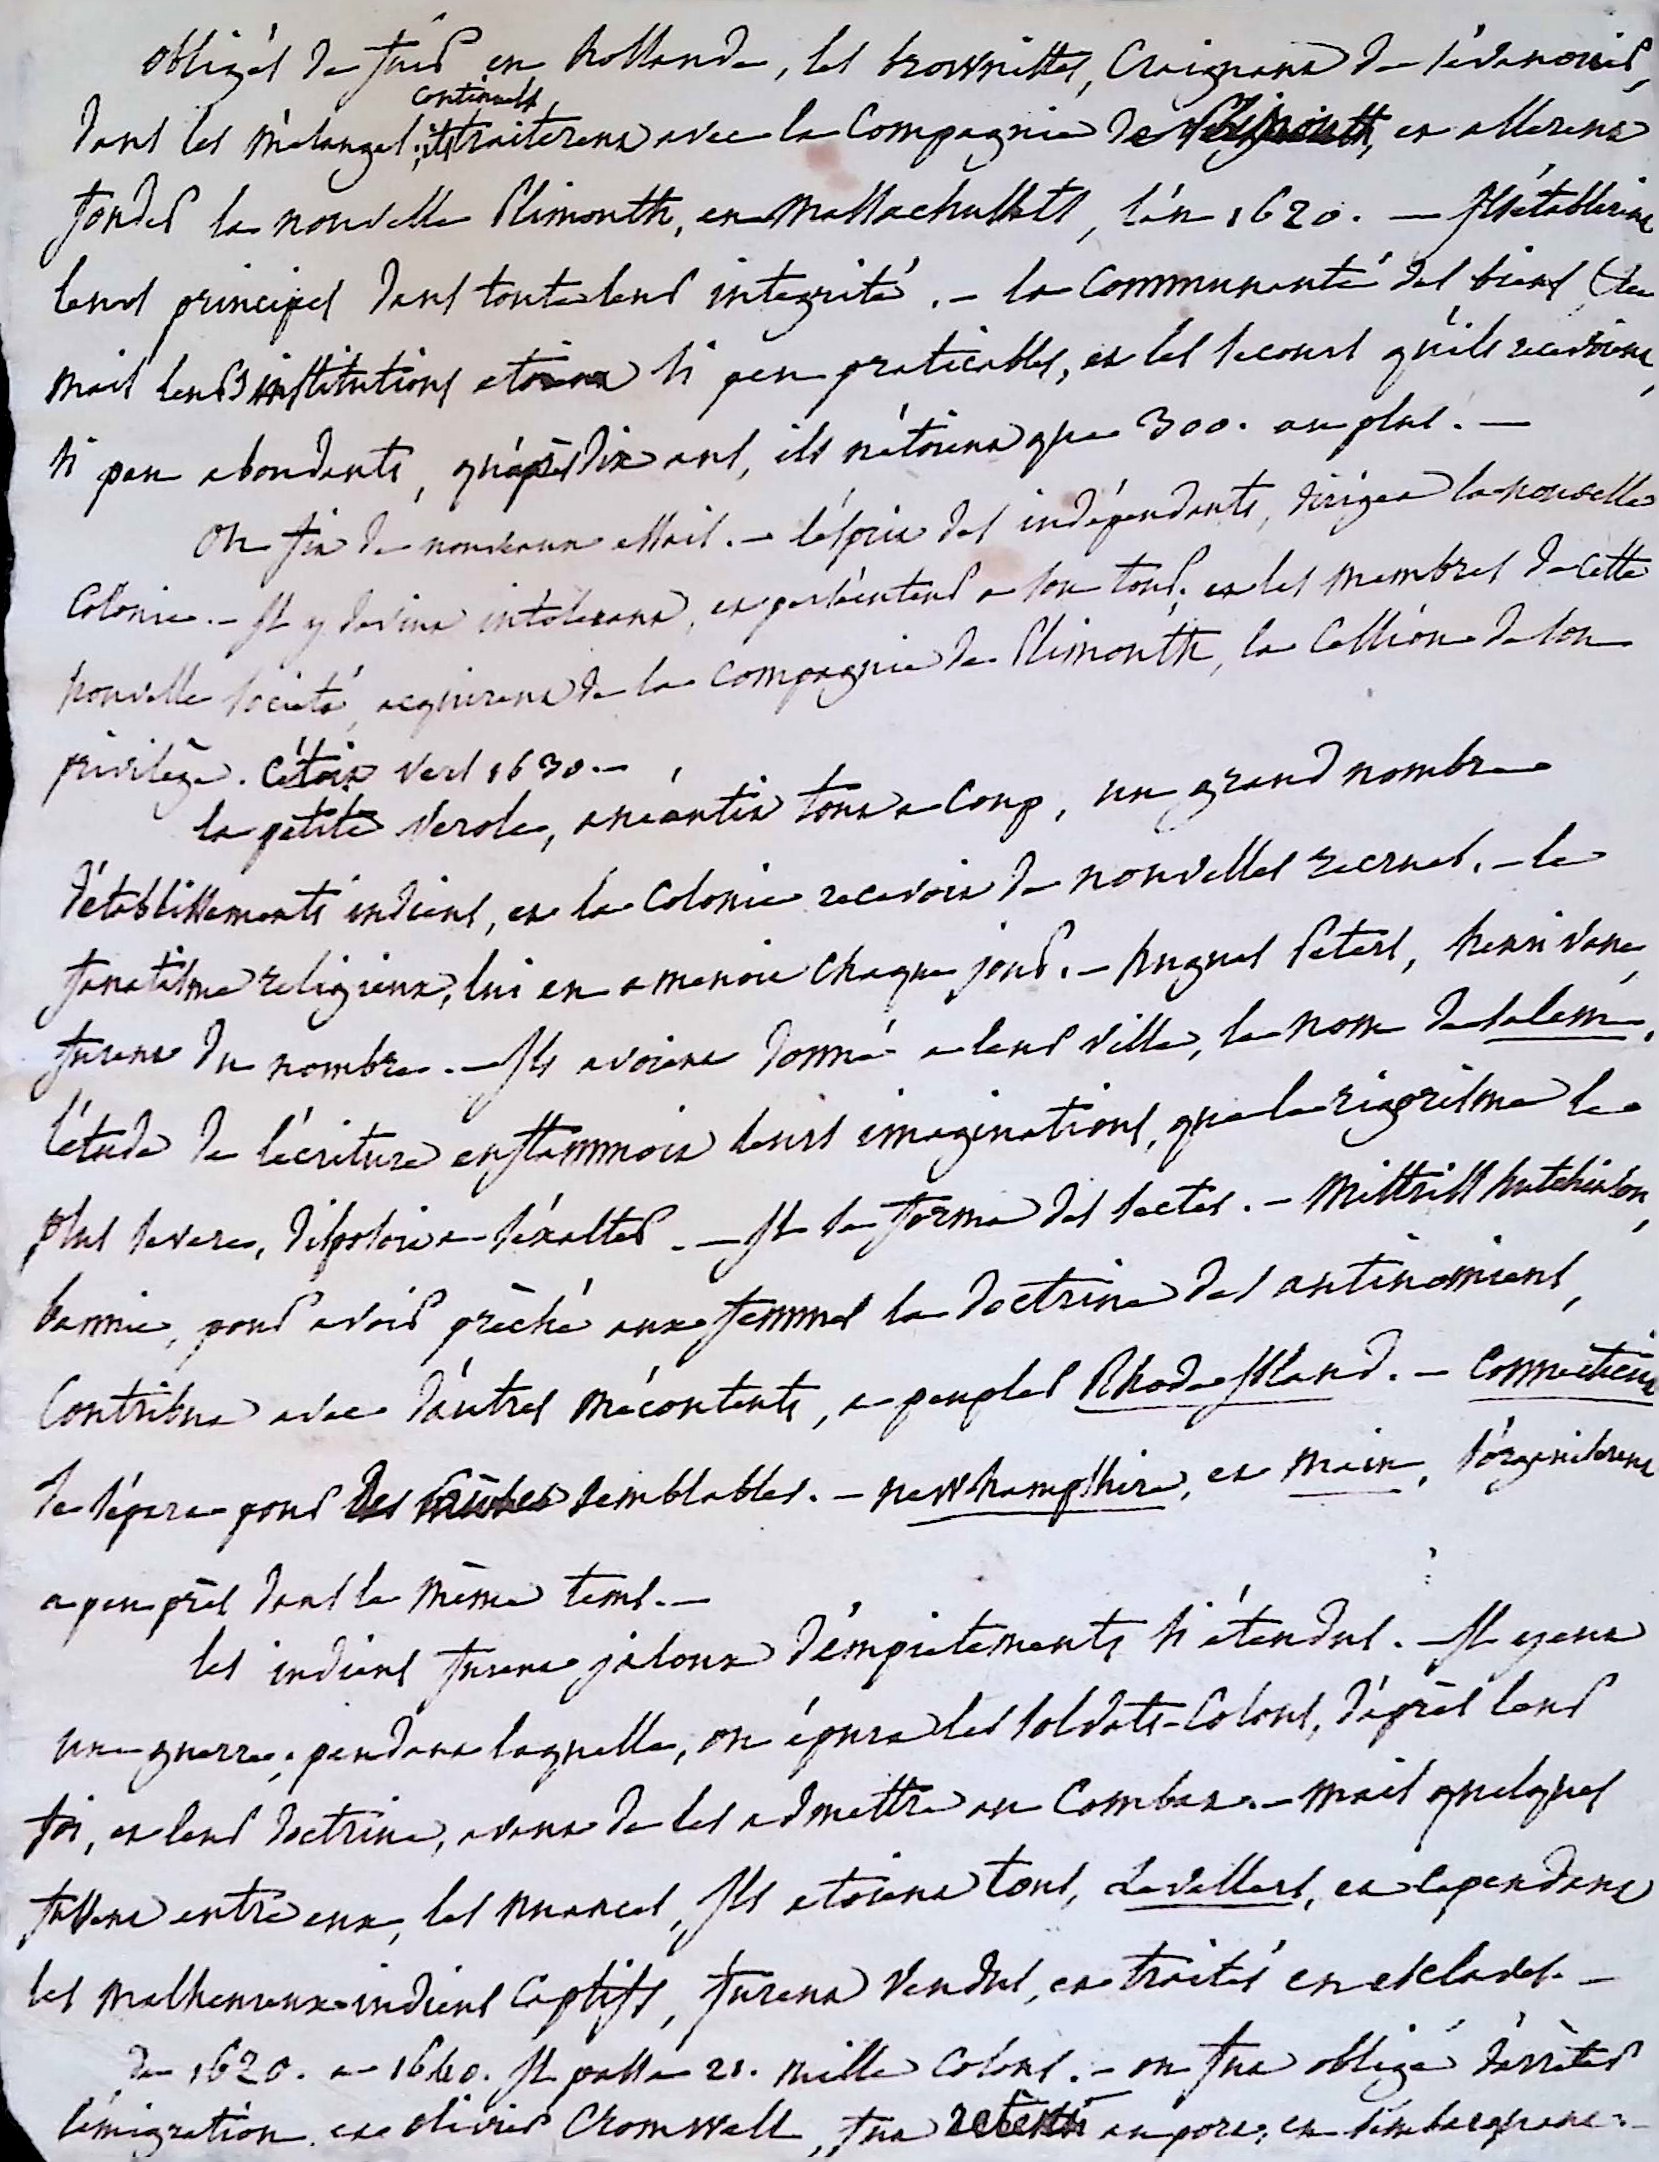 obligés de fuir en hollande, les brownistes, craignant de s'évanouir,
continuels
dans les mélanges; ils traiterent avec la Compagnie de Plimouth, et allerent
fonder la nouvelle Plimouth, en Massachussets, l'an 1620. — Ils établirent
leurs principes dans toute leur intégrité. — la Communauté des biens &c
mais leurs institutions etoient si peu praticables, et les secours qu'ils recevoient,
si peu abondants, qu'après dix ans, ils n'étoient que 300. au plus. —
on fit de nouveaux essais. — l'esprit des indépendants, dirigea la nouvelle
Colonie. — Il y devint intolérant, et persécuteur a son tour; et les membres de cette
nouvelle société, acquirent de la Compagnie de Plimouth, la Cession de son
privilège. C'étoit vers 1630. —
la petite verole, anéantit tout a coup, un grand nombre
d'établissements indiens, et la Colonie recevoit de nouvelles recrues. — le
fanatisme religieux, lui en amenoit chaque jour. — hugues Peters, henri vane,
furent du nombre. — Ils avoient donné a leur ville, le nom de salem.
l'étude de l'écriture enflammoit leurs imaginations, que le rigorisme le
plus severe, disposoit a s'éxalter. — Il se forma des sectes. — Mistriss hutchinson,
bannie, pour avoir prêché aux femmes la doctrine des antinomiens,
Contribua avec d'autres mécontents, a peupler Rhode Island. — Connecticut
se sépara pour des semblables. — new hampshire, et main, s'organiserent
a peu près dans le même tems. —
les indiens furent jaloux d'empietements si étendus. — Il y eut
une guerre, pendant laquelle, on épura les soldats-Colons, d'après leur
foi, et leur doctrine, avant de les admettre au Combat. — mais quelques
fussent entre eux, les nuances, Ils etoient tous, Levellers, et cependant
les malheureux indiens captifs, furent vendus, et traités en esclaves. —
de 1620. a 1640. Il passa 21. mille Colons. — on fut obligé d'arrêter
l'émigration. et olivier Cromwell, fut retenu au port, en s'embarquant. —